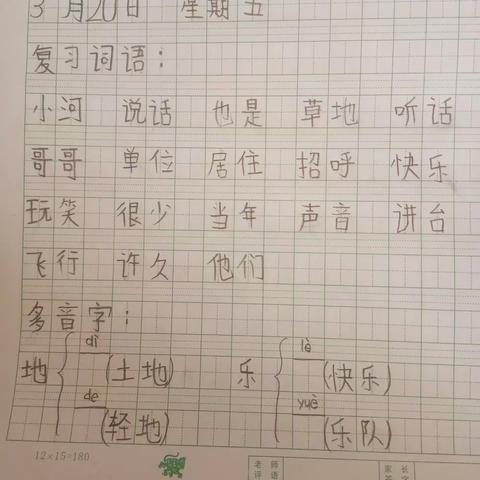 3月20日 星期五
复习词语：
小河 说话 也是 草地 听话
哥哥 单位 居住 招呼 快乐
玩笑 很少 当年 声音 讲台
飞行 许久 他们
多音字：
dì lè
地 (土地) 乐 (快乐)
de yuè
(轻地) (乐队)
12×15=180
老师评语
家长签字